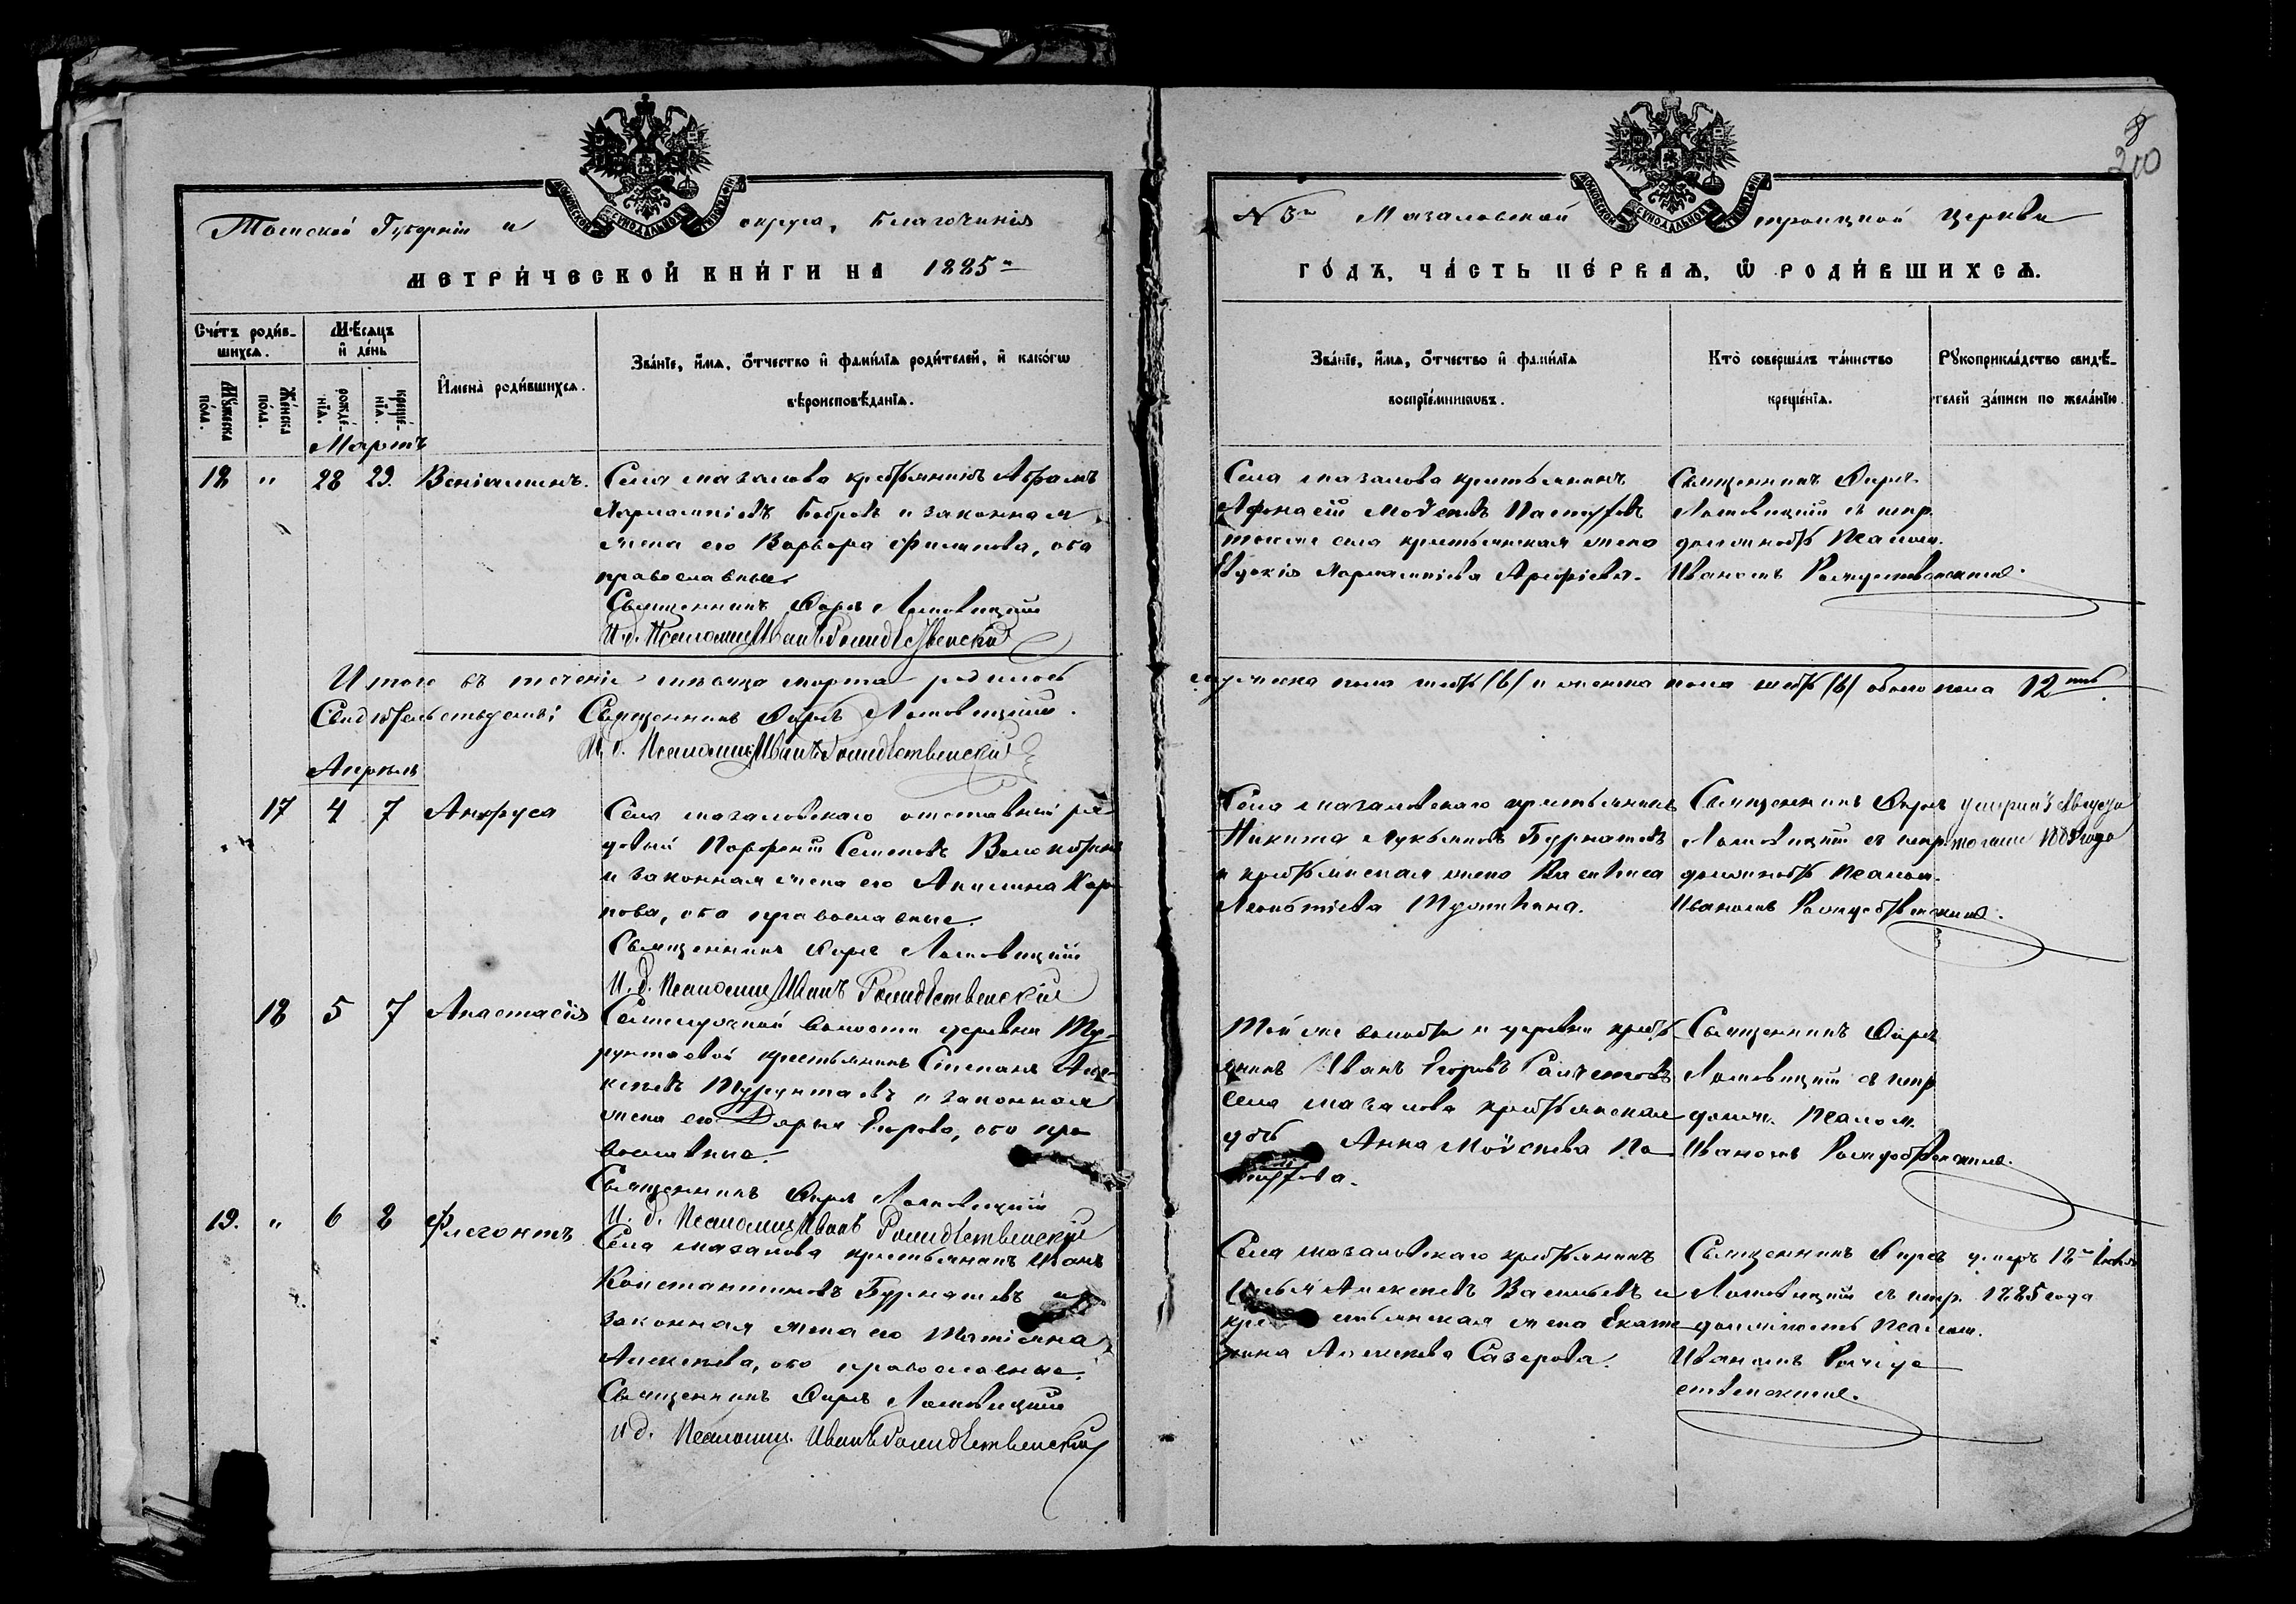 8
210
Томской Губерніи и округа, Благочинія
МЕТРИ́ЧЕСКОЙ КНИ́ГИ НА 1885
№ 3 Мазаловской троицкой церкви
ГО́ДЪ, ЧА́СТЬ ПЕ́РВАѦ, Ѡ РОДИ́ВШИХСѦ.
Сче́тъ роди́в-
шихсѧ.
Мѣ́сѧцъ
и де́нь
Мꙋ́жеска
по́ла.
Же́нска
по́ла.
рожде́-
нїѧ.
креще́-
нїѧ.
И҆мена̀ роди́вшихсѧ.
Зва́нїе, и҆́мѧ, о҆́тчество и҆ фами́лїѧ роди́телей, и҆ како́гѡ
вѣроисповѣ́данїѧ.
Зва́нїе, и҆́мѧ, о҆́тчество и҆ фами́лїѧ
воспрїе́мникѡвъ.
Кто̀ соверша́лъ та́инство
креще́нїѧ.
Рꙋкоприкла́дство свидѣ́-
телей за́писи по жела́нїю.
Мартъ
18 " 28 29. Веніаминъ.
Села мазалова крестьянинъ Абрамъ
Харлампіевъ Бобровъ и законная
жена его Варвара Филипова, оба
православные
Священникъ Лятовицкій
И. д. Псаломщ. Иванъ Рождественскій
Села мазалова крестьянинъ
Афонасій Моѵсеевъ Пастуховъ
тогоже села крестьянская жена
Евдокія Харлампіева Арефіева.
Священникъ
Лятовицкій съ испр.
должность Псалом.
Иваномъ Рождественскимъ.
Итого въ теченіе мѣсяца марта родилось
мужеска пола шесть /6/ и женска пола шесть /6/ обоего пола 12
Свидѣтельствуемъ: Священникъ Лятовицкій.
И. д. Псаломщ. Иванъ Рождественскій
Апрель
17 4 7 Анфуса
Села мазаловскаго отставной ря-
довой Порфирій Семеновъ
и законная жена его Акилина Кар-
пова, оба православные.
Священникъ Лятовицкій
И. д. Псаломщ. Иванъ Рождественскій
Села мазаловскаго крестьянинъ
Никита Лукьяновъ Бурнашевъ
и крестьянская жена Васиlиса
Леонтіева
Священникъ
Лятовицкій съ испр.
должность Псалом.
Иваномъ Рождественскимъ.
умерла 3 Августа
тогоже 1885 года
18 5 7 Анастасія
Семилужной волости деревни Ту-
рунтаевой крестьянинъ Степанъ Алек-
сеевъ Турунтаевъ и законная
жена его Дарья Егорова, оба пра-
вославные.
Священникъ Лятовицкій
И. д. Псаломщ. Иванъ Рождественскій
Той же волости и деревни кресть-
янинъ Иванъ Егоровъ
села мазалова крестьянская
дочь Анна Моѵсеева Па-
стухова.
Священникъ
Лятовицкій съ испр.
должн. Псалом.
Иваномъ Рождественскимъ.
19. " 6 8 Флегонтъ
Села мазалова крестьянинъ Иванъ
Константиновъ Бурнашевъ и
законная жена его Татіяна
Алексеева, оба православные.
Священникъ Лятовицкій
И. д. Псаломщ. Иванъ Рождественскій
Села мазаловскаго крестьянинъ
Алексеевъ Васильевъ и
крестьянская жена Екате-
рина Алексеева Сазерова.
Священникъ
Лятовицкій съ испр.
должность Псалом.
Иваномъ Рожде-
ственскимъ.
умеръ 12
1885 года